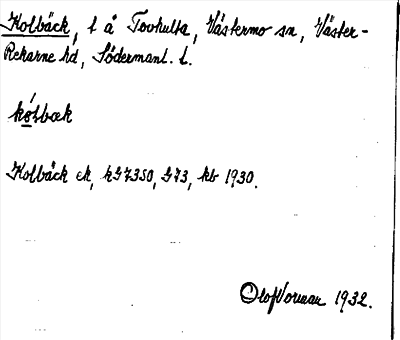 Kolbäck, t å Tovhulta, Västermo sn, Väster-
Rekarne hd, Söderman l. L.
kólbæk
Kolbäck ek, hG7350, G73, kb 1930.
Olof Vorman 1932.